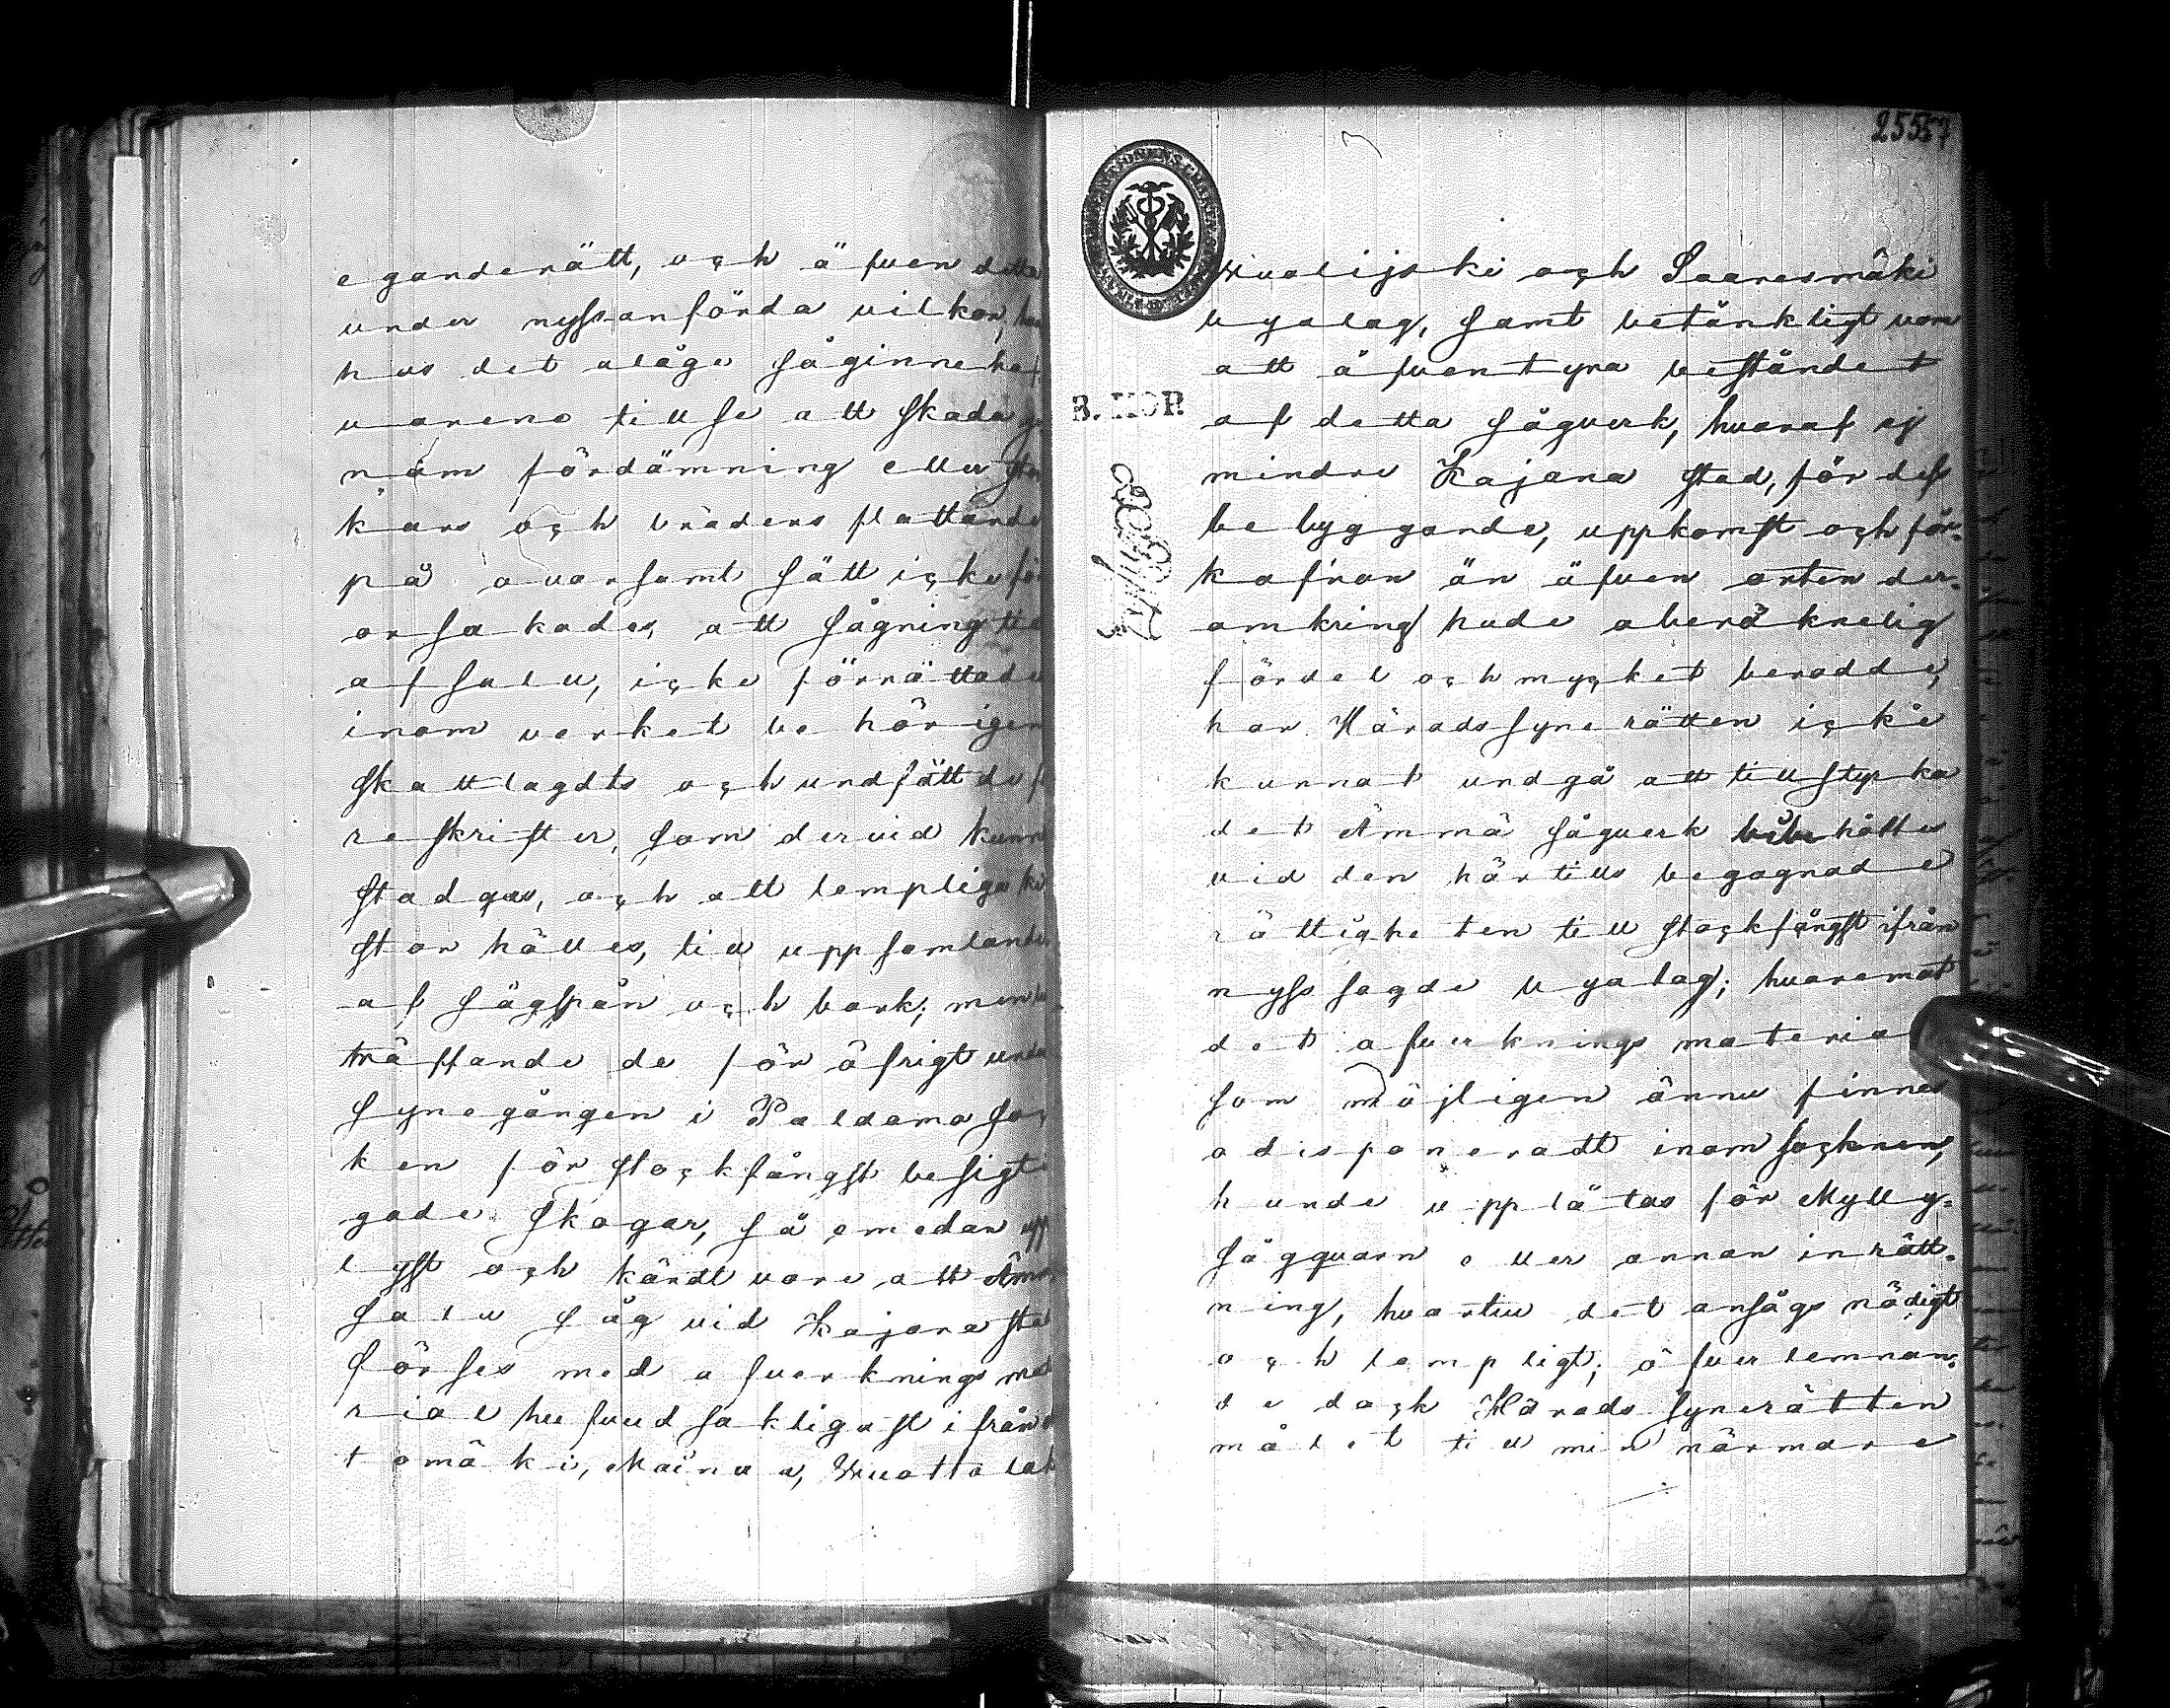 eganderätt, och äfven detta
under nyssanförda vilkor,
hos det ålåge såginnehaf
varene tillse att skada ge
nom fördämning eller sto
kars och bräders flottande
på ovarsamt sätt icke för
orsakades, att sågning till
afsalu, icke förrättades
inom verket behörigen
skattlagdts och undfått de f
reskrifter, som dervid kunn
stadgas, och att lempliga ki
stor hålles, till uppsamlande
af sågspån och bark;
träffande de för öfrigt under
synegången i Paldamo soc
ken för stockfångst besigti
gade skogar, så emedan upp
lyst och kändt vore att Ämm
salu såg vid Kajana stad
förses med afverknings mat
rial hufvudsakligast ifrån
tomäki, Mainua, Wuottolah
25557
Wuolijoki och Saaresmäki
byalag, samt betänkligt vore
att äfventyra beståndet
af detta sågverk, hvaraf ej
mindre Kajana stad, för dess
bebyggande, uppkomst och för-
kofran än äfven orten der-
omkring hade oberäknelig
fördel och mycket berodde,
har Häradssynerätten icke
kunnat undgå att tillstyrka
det Ämmä sågverk bibehölles
vid den härtills begagnade
rättigheten till stockfångst ifrån
nysssagde byalag; hvaremot
det afverknings materia
som möjligen ännu finnes
odisponeradt inom socknen,
kunde upplåtas för Mylly-
sågqvarn eller annan inrätt-
ning, hvartill det ansågs nödigt
och lempligt; öfverlemnan-
de dock Härads Synerätten
målet till min närmare
B. KOP.